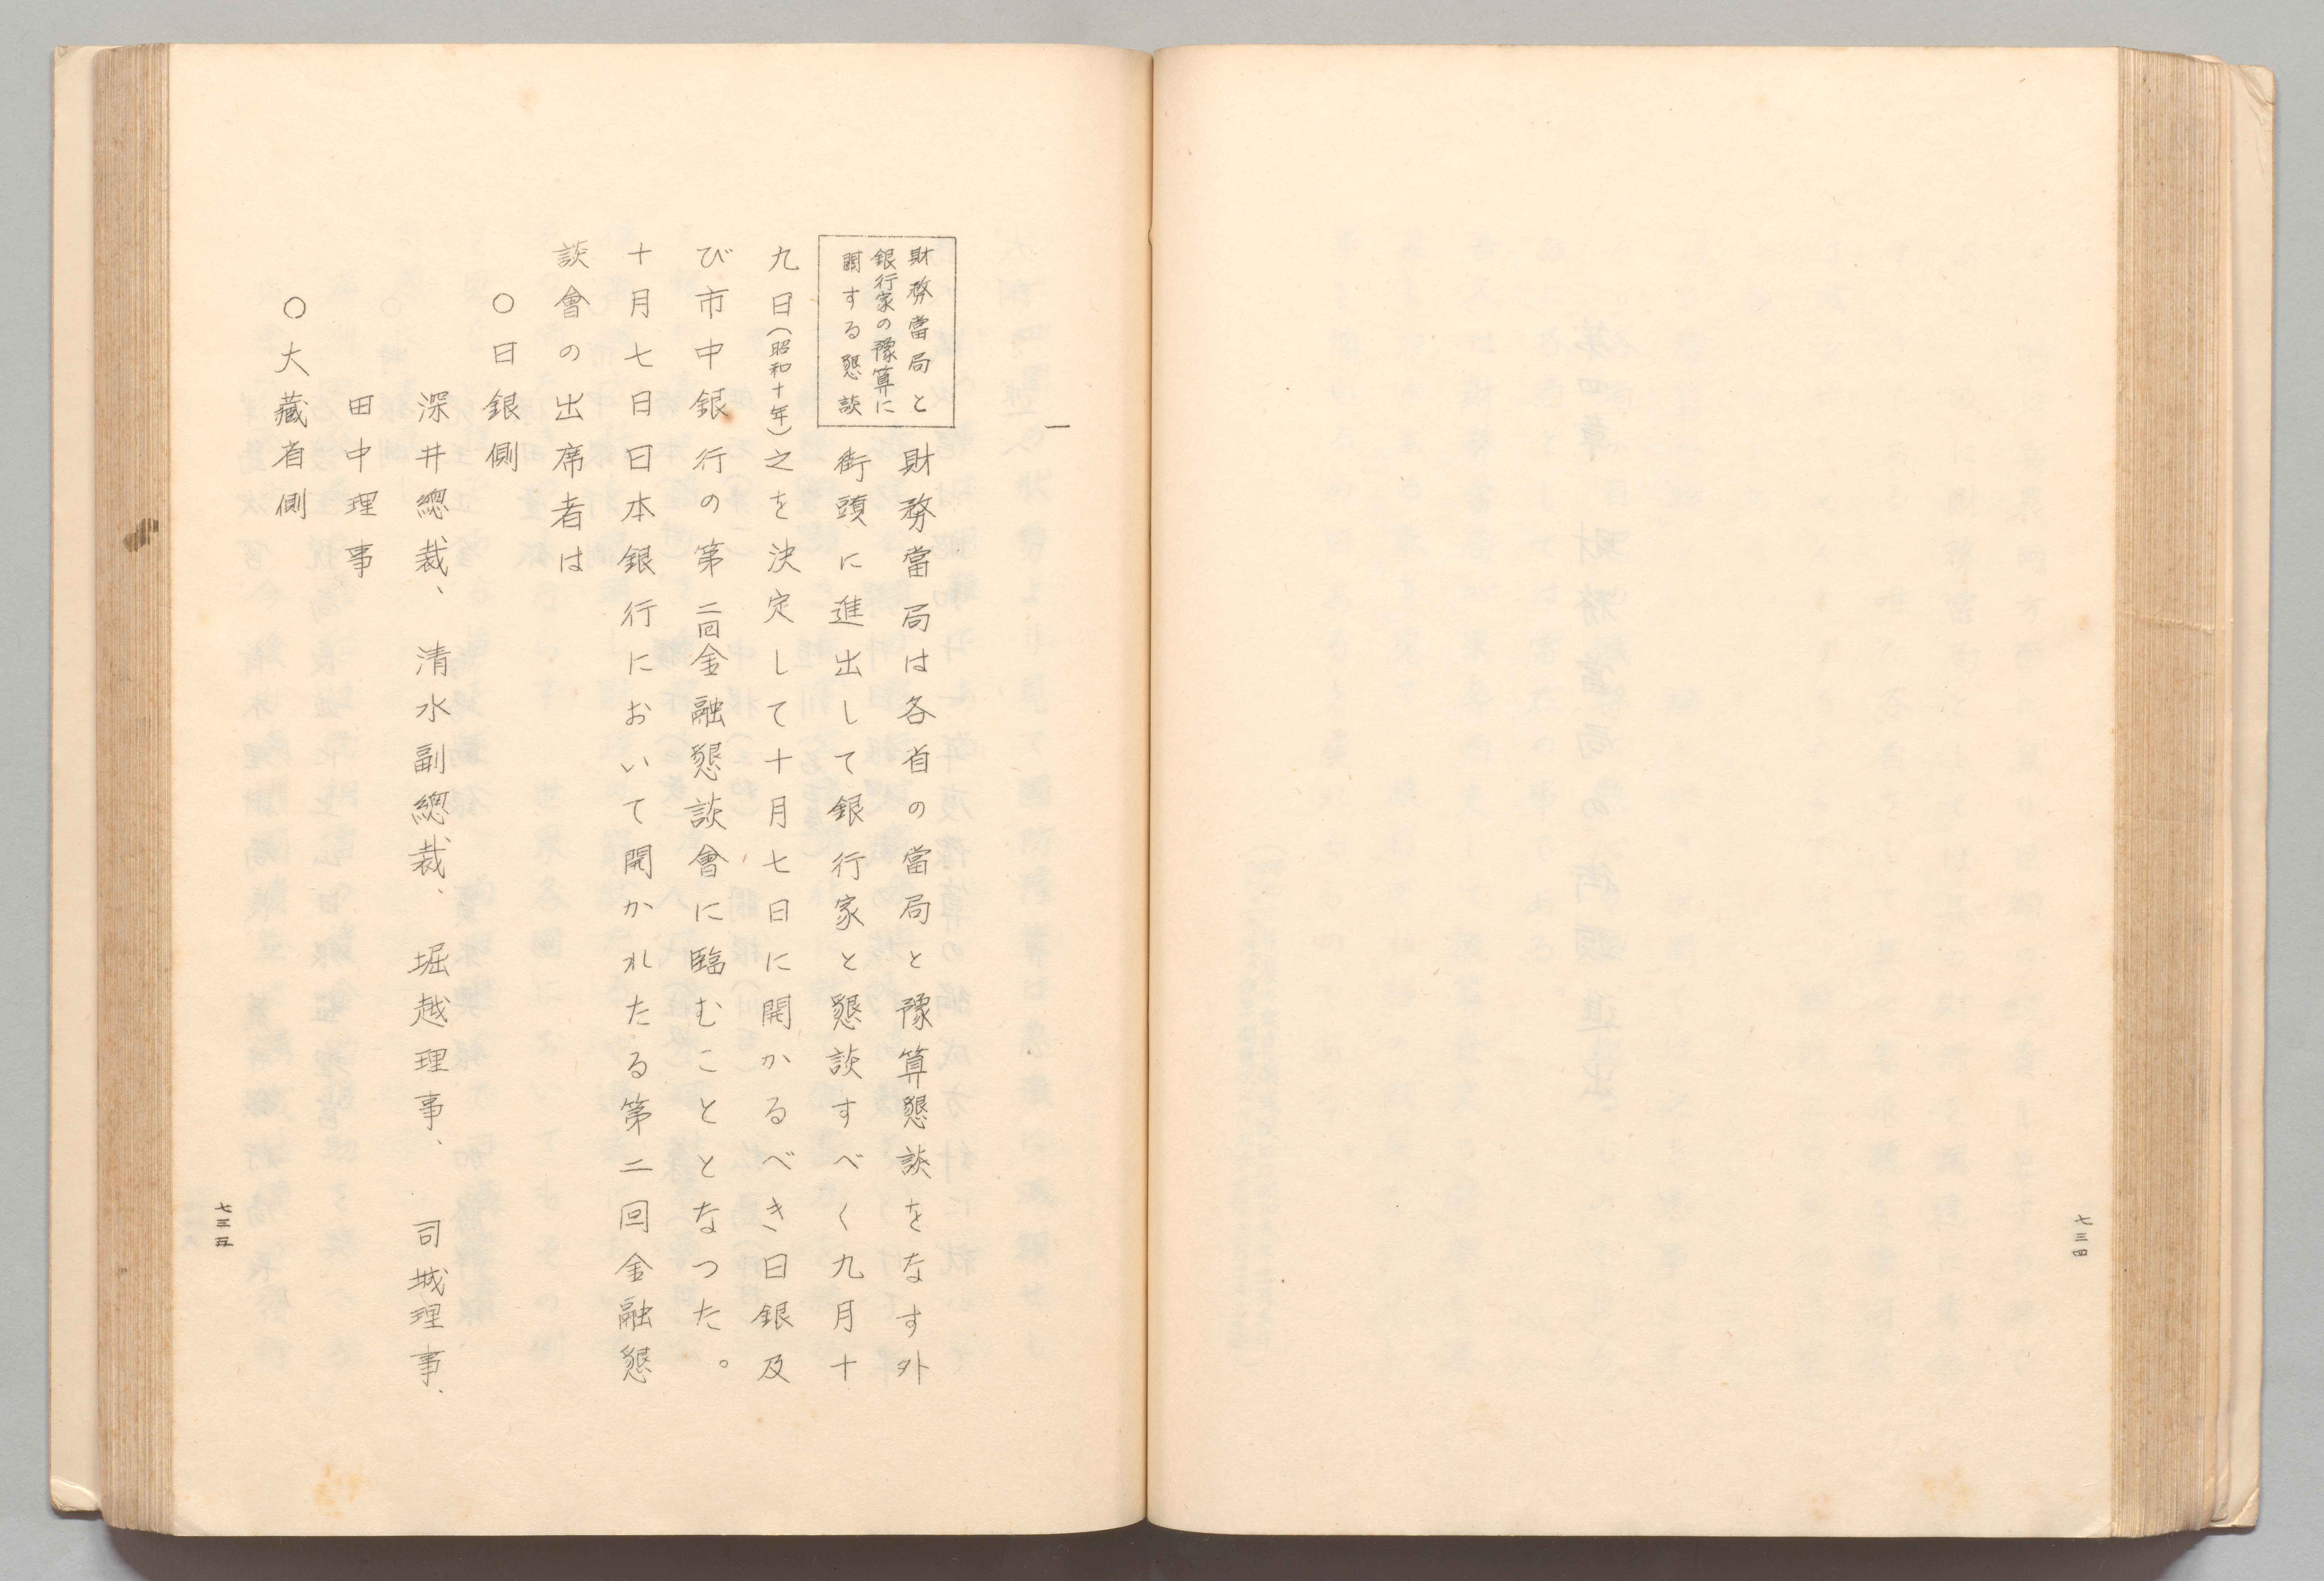 七三四
一
財務當局と
銀行家の豫算に
関する懇談
財務當局は各省の當局と豫算懇談をなす外
街頭に進出して銀行家と懇談すべく九月十
九日(昭和十年)之を決定して十月七日に開かるべき日銀及
び市中銀行の第二回金融懇談會に臨むこととなつた。
十月七日日本銀行において開かれたる第二回金融懇
談會の出席者は
○日銀側
深井總裁、清水副總裁、堀越理事、司城理事、
田中理事
○大藏省側
七三五